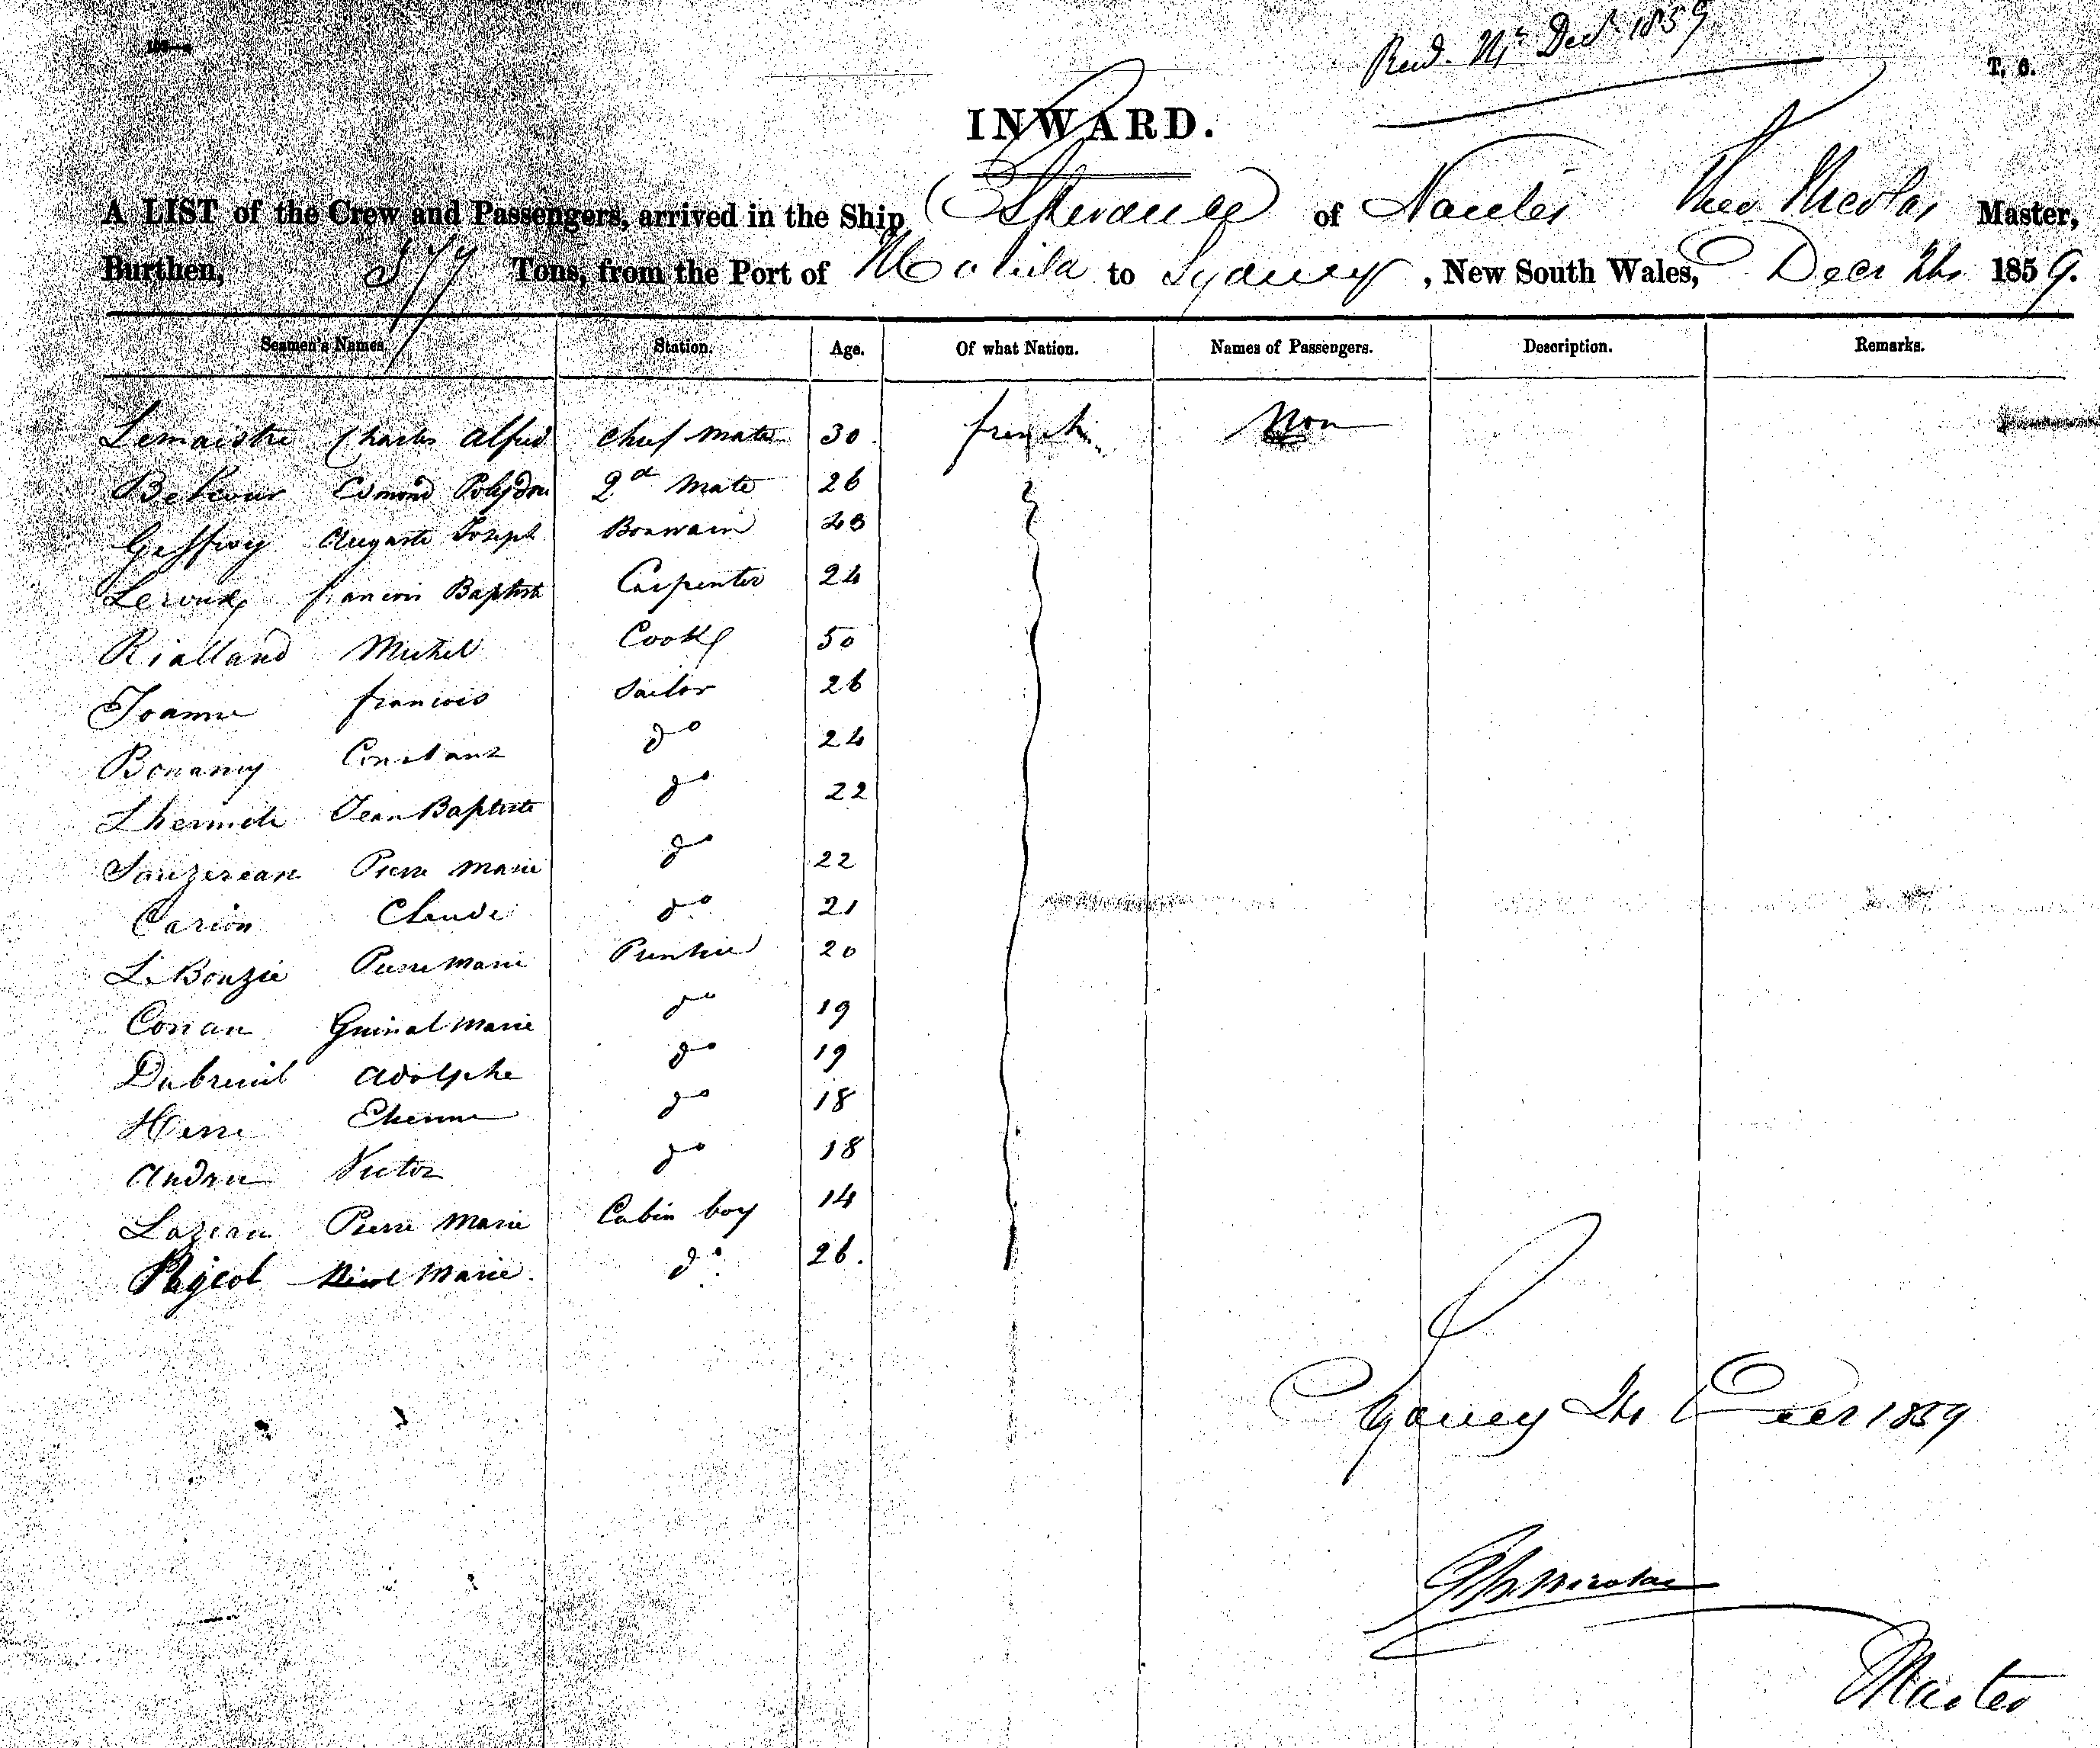 Recd. Dec. 1859
T. 6.
INWARD.
A LIST of the Crew and Passengers, arrived in the Ship Esperance of Nantes Theo Nicolas Master,
Burthen, 377 Tons, from the Port of Manila to Sydney, New South Wales, Decr 24 1859.
Seamen's Names. Station. Age. Of what Nation. Names of Passengers. Description. Remarks.
Lemaistre Charles Alfred Chief Mate 30. french Non
Edmond Polydore 2d Mate 26
Geffroy Auguste Joseph Boswain
Leroux francois Baptiste Carpenter 24
Rialland Michel Cook 50
Joanne francois Sailor 26
Bonamy Constant do 24
Lhermite Jean Baptiste do 22
Sauzereau Pierre Marie do 22
Carion Claude do 21
Le Bouzie Pierre Marie Prentice 20
Conan Guinal Marie do 19
Dubreuil Adolphe do 19
Herre Etienne do 18
Andree Victor do 18
Pierre Marie Cabin boy 14
Marie. do 26.
Sydney 24 Decr 1859
Nicolas
Master